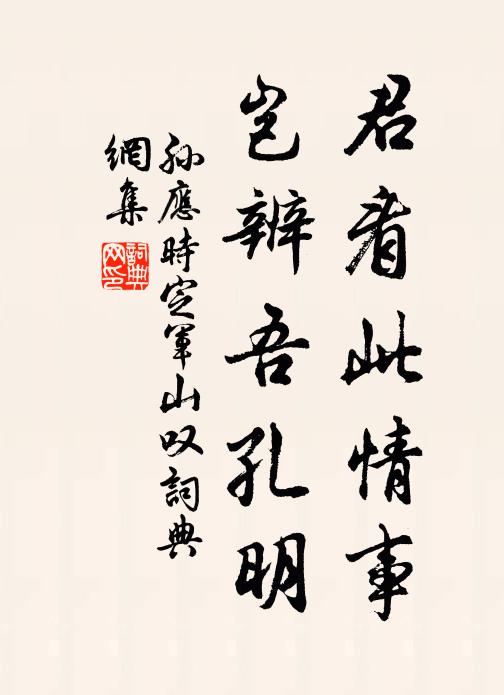 君看此情事
豈辨吾孔明
孫應時定軍山叹詞典
網集
詞典
网印